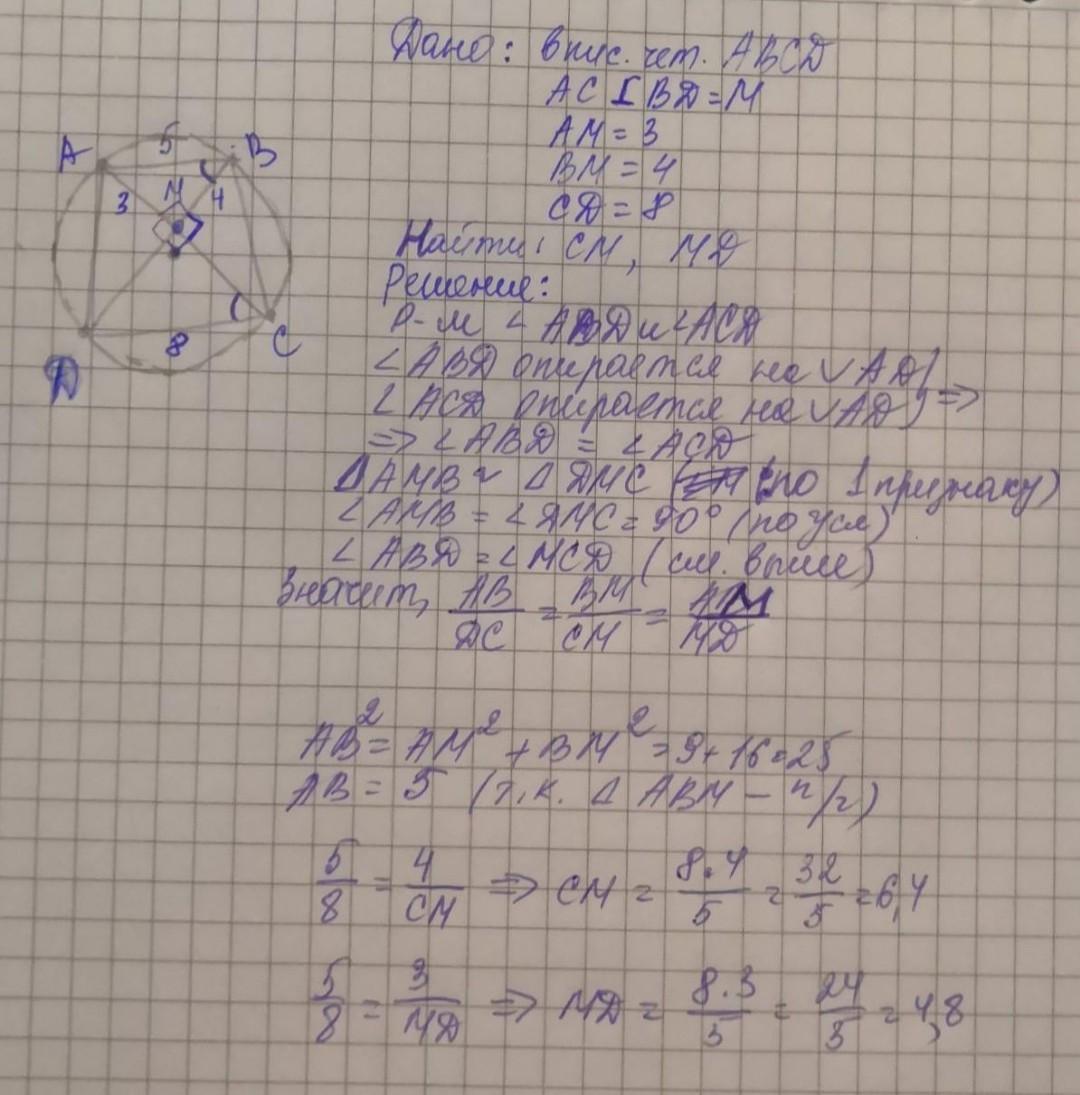 Дано: впис. чет. ABCD
AC ⊥ BD = M
AM = 3
BM = 4
CD = 8
Найти: CM, MD
Решение:
Р-м ∠ABD и ∠ACD
∠ABD опирается на ◡AD
∠ACD опирается на ◡AD } =>
=> ∠ABD = ∠ACD
ΔAMB ~ ΔDMC (по 1 признаку)
∠AMB = ∠DMC = 90° (по усл)
∠ABD = ∠MCD (см. выше)
Значит, AB/DC = BM/CM = AM/MD
AB² = AM² + BM² = 9 + 16 = 25
AB = 5 (т.к. Δ ABM - п/г)
5/8 = 4/CM => CM = 8·4/5 = 32/5 = 6,4
5/8 = 3/MD => MD = 8·3/5 = 24/5 = 4,8
A 5 B
3 M 4
8 C
D